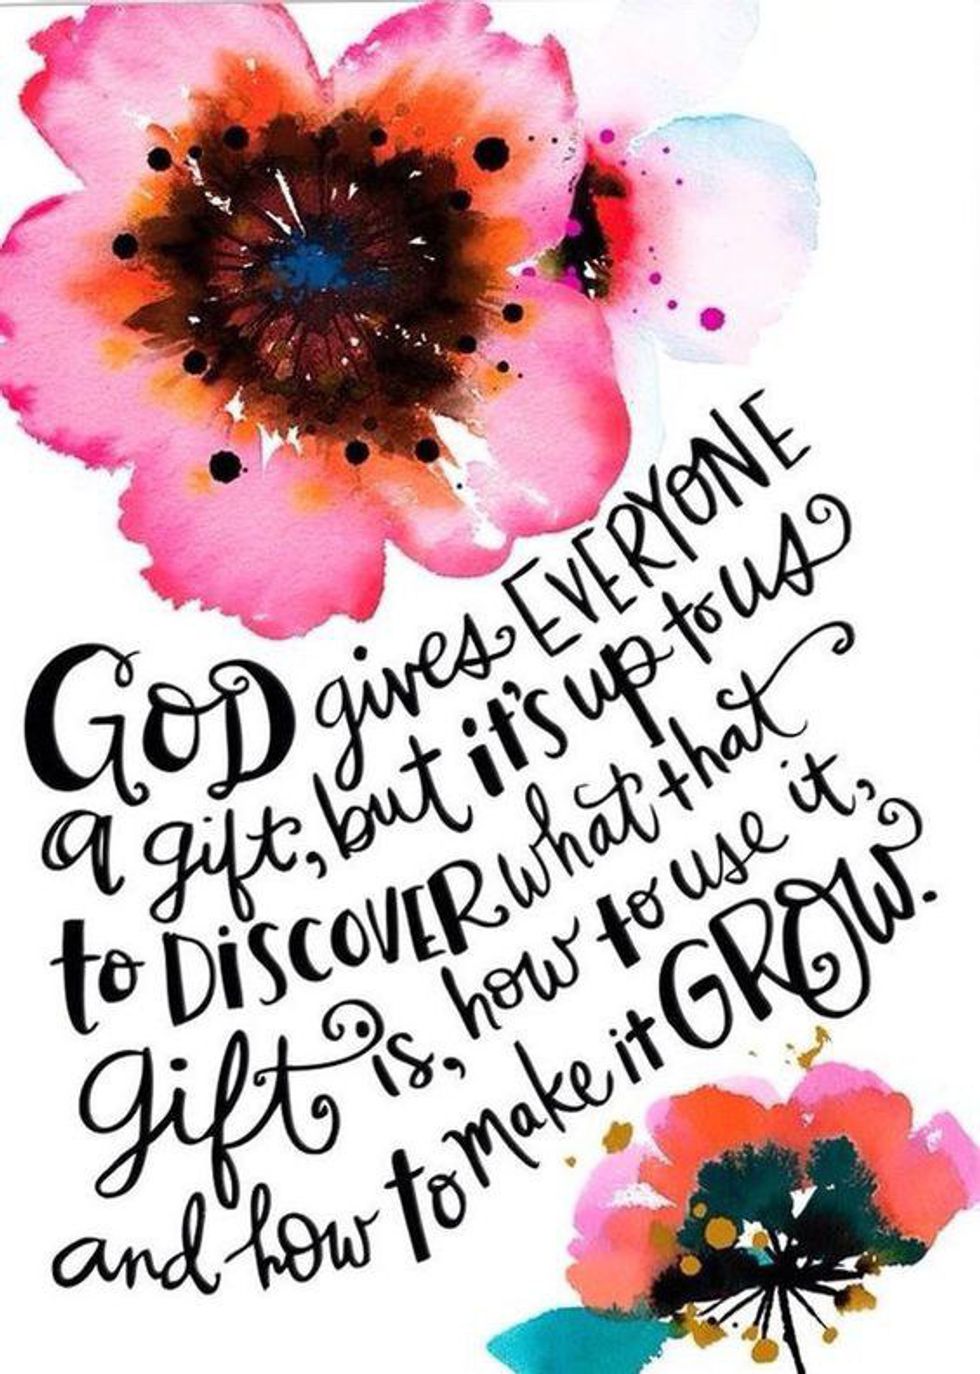 GOD gives EVERYONE
a gift, but it's up to us
to DISCOVER what that
gift is, how to use it,
and how to make it GROW.